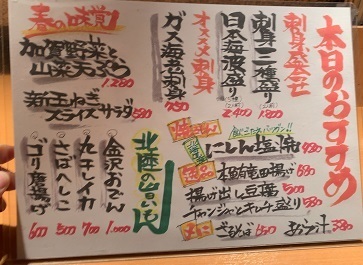 本日のおすすめ
刺身盛合せ
刺身二種盛り
日本海波盛り 2400 1800
オススメ刺身
ガス海老刺身 750
春の味覚!
加賀野菜と
山菜天ぷら 1,280
新玉ねぎ
スライスサラダ 580
にしん塩焼 930
揚げ出し豆腐 500
チャンジャとキムチ盛り
ざるそば 650
あら汁 330
北陸の旨いもん
金沢おでん 1,000
丸干しイカ 700
さばへしこ 500
ゴリ唐揚げ 600